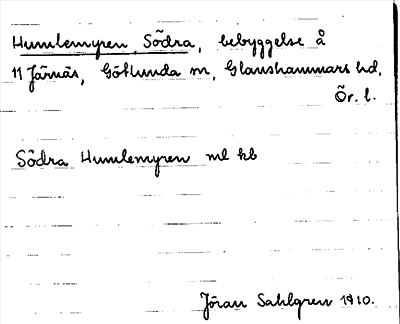 Humlemyren, Södra, bebyggelse å
11 Järnäs, Götlunda sn, Glanshammars hd,
Ör. l.
Södra Humlemyren ml kb
Jöran Sahlgren 1910.